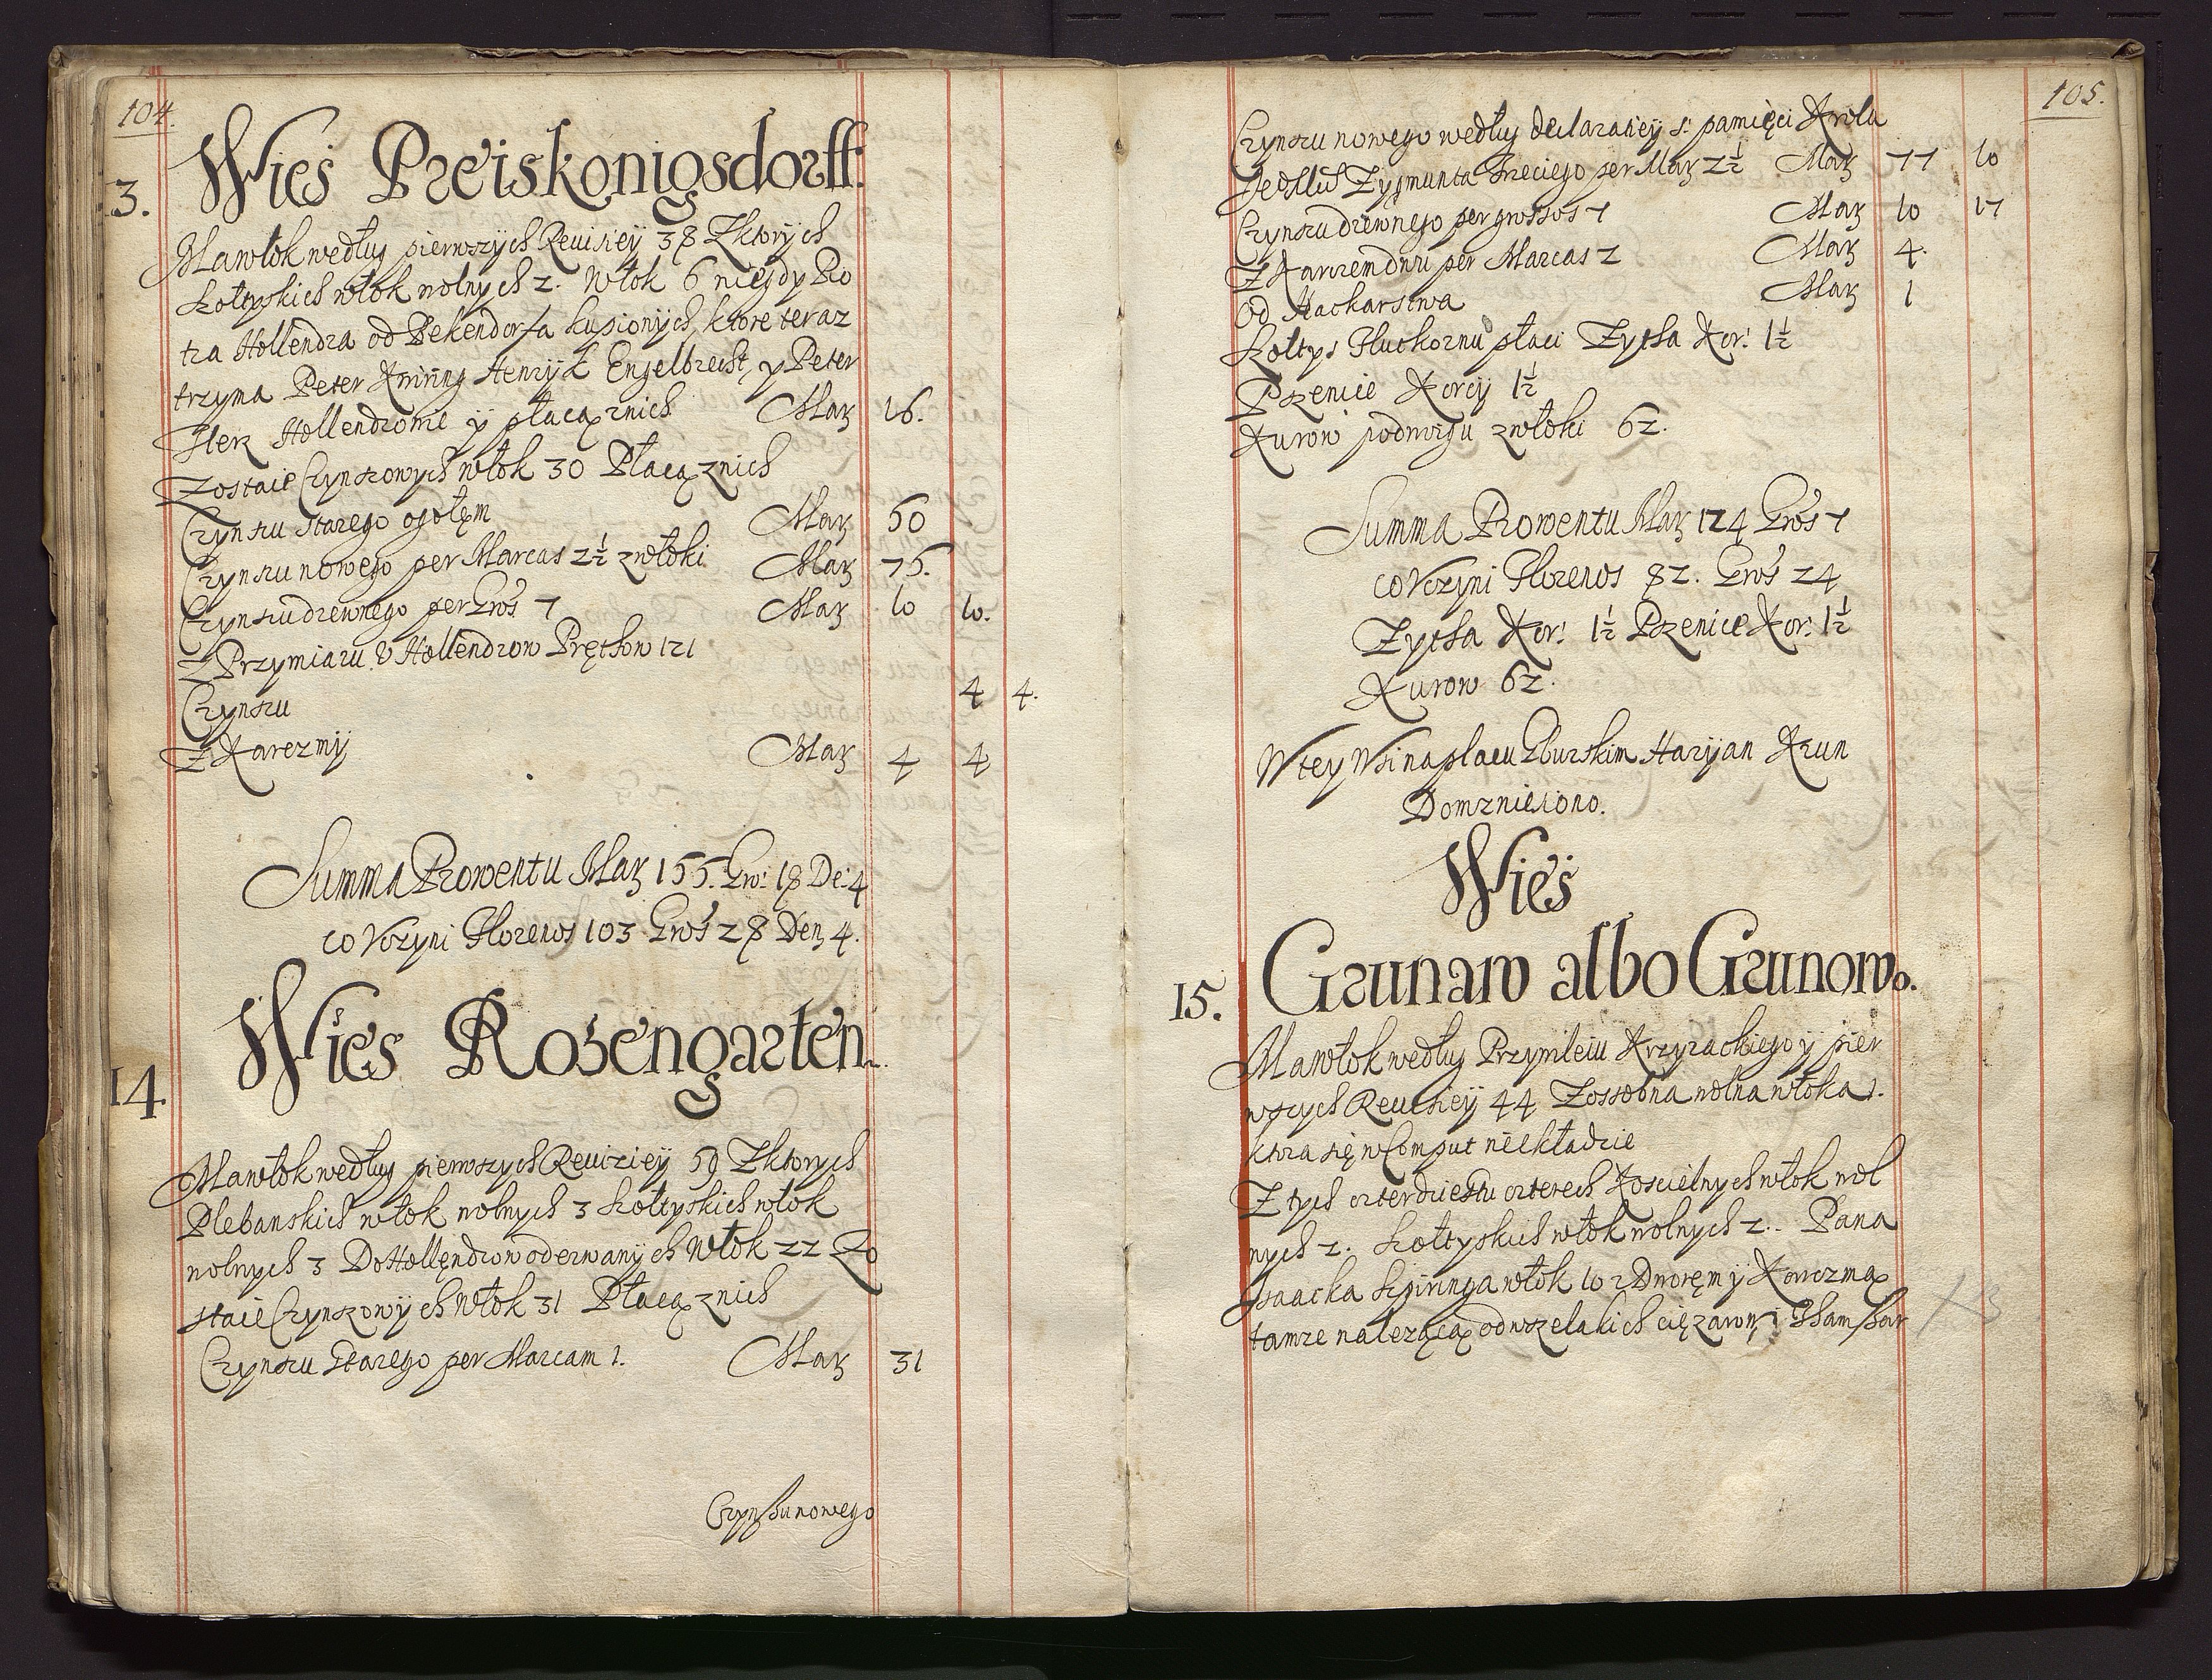 104.
3. Wieś Preiskonigsdorff.
Ma włok według pierwszych Reuisiey 38 Zktorych
Sołtyskich włok wolnych 2. Włok 6 niegdy Pio
tra Hollendra od Bekendorfa kupionych, ktore teraz
trzyma Peter Henryk Engelbrecht, y Peter
Hollendrowie y płacą znich Mar 16.
Zostaie Czynszowych włok 30 Płacą znich
Czynszu starego ogołem Mar 50
Czynszu nowego per Marcas 2½ zwłoki Mar 75.
Czynszu drewnego per Gros 7 Mar 10 10.
Z Przymiaru V Hollendrow Pręthow 121
Czynszu 4 4.
Z Karczmy Mar 4 4
Summa Prowentu Mar 155. Gro: 18 De: 4
co Vczyni Florenos 103 Gros 28 Den 4.
14. Wies Rosengarten.
Ma włok według pierwszych Reuiziey 59 Zktorych
Plebanskich włok wolnych 3 Sołtyskich włok
wolnych 3 Do Hollęndrow oderwanych Włok 22 Zo
staie Czynszowych Włok 31 Płacą znich
Czynszu Starego per Marcam 1. Mar 31
Czynszu nowego
105.
Czynszu nowego według declaratiey S. pamięci Krola
Je Mści Zygmunta Trzeciego per Mar 2½ Mar 77 10
Czynszu drewnego per grossos 7 Mar 10 17
Z Karczem dwu per Marcas 2 Mar 4.
Od Hackarstwa Mar 1
Sołtys Płuthornu płaci Zytha Kor: 1½
Pszenice Korcy 1½
Kurow po dwoygu zwłoki 62.
Summa Prowentu Mar 124 Gros 7
co Vczyni Florenos 82. Gros 24
Zytha Kor: 1½ Pszenice Kor: 1½
Kurow 62.
W tey Wsi na placu Gburskim Haryan Krun
Dom zniesiono.
Wieś
15. Grunaw albo Grunowo.
Ma włok według Przywileiu Krzyzackiego y pier
wszych Reuisiey 44 Zossobna wolna włoka 1.
ktora się w Comput nie kładzie
Z tych czterdziestu czterech Koscielnych włok wol
nych 2. Sołtyskich włok wolnych 2. Pana
Isaacka Spiringa włok 10 z Dworęm y Karczmą
tamze nalezącą od wszelakich cięzarow